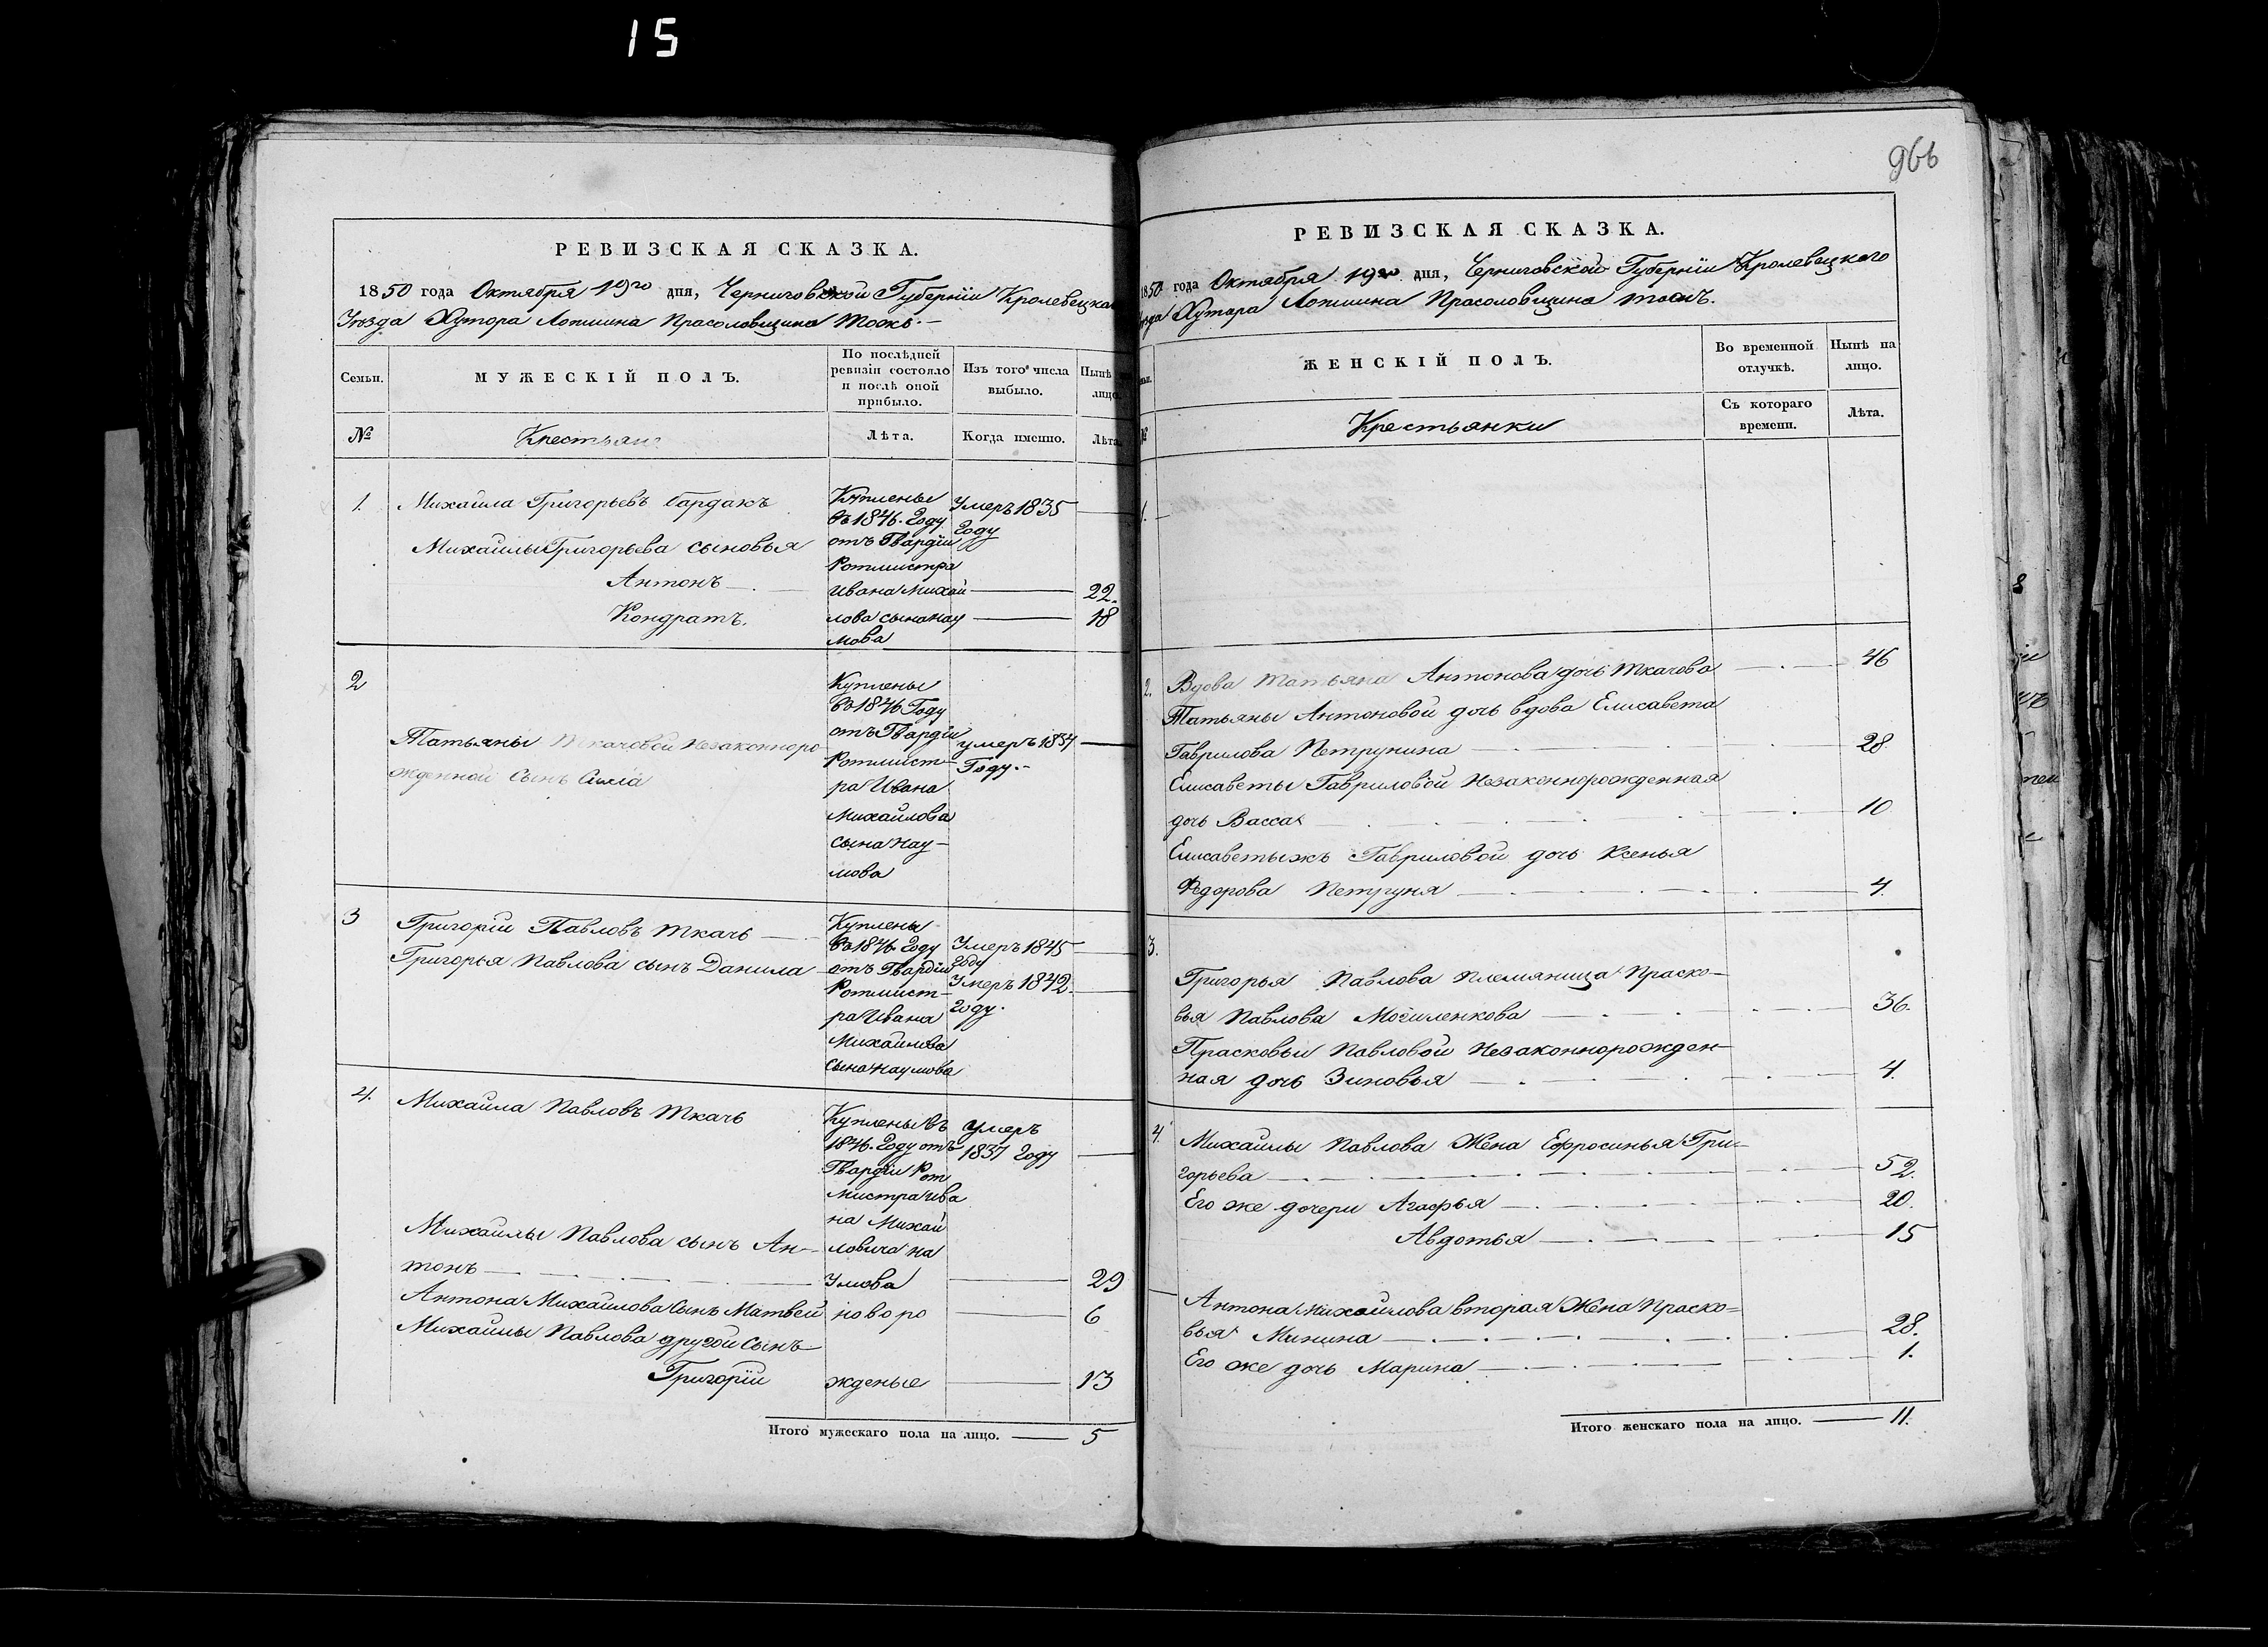 15
966
РЕВИЗСКАЯ СКАЗКА.
1850 года Октября 19го дня, Черниговской Губерніи Кролевецка
Уѣзда Хутора Лопшина Прасоловщина тожъ.
Семьи.
МУЖЕСКІЙ ПОЛЪ.
По послѣдней ревизіи состояло и послѣ оной прибыло.
Изъ того числа выбыло.
Нынѣ лицо
№
Крестьяне
Лѣта.
Когда именно.
Лѣта
1. Михайла Григорьевъ Гардакъ
Куплены
въ 1846. Году
отъ Гвардіи
Ротмистра
Ивана Михай
лова сына Нау
мова
Умеръ 1835
году
Михайлы Григорьева сыновья
Антонъ 22.
Кондратъ. 18
2
Татьяны Ткачовой незаконноро
жденной сынъ
Куплены
въ 1846 Году
отъ Гвардіи
Ротмист-
ра Ивана
Михайлова
сына Нау-
мова
умеръ 1834
Году.
3 Григорій Павловъ Ткачь
Григорья Павлова сынъ Данила
Куплены
въ 1846 Году
отъ Гвардіи
Ротмист-
ра Ивана
Михайлова
Сына Наумова
Умеръ 1845
году
Умеръ 1842.
году.
4. Михайла Павловъ Ткачь
Куплены въ
1846. Году отъ
Гвардіи Рот
мистра Ива
на Михай
ловича На
умова
умеръ
1837 году
Михайлы Павлова сынъ Ан-
тонъ 29
Антона Михайлова Сынъ Матвей новоро 6
Михайлы Павлова другой Сынъ
Григорій жденые 13
Итого мужескаго пола на лицо. 5
РЕВИЗСКАЯ СКАЗКА.
1850 года Октября 19го дня, Черниговской Губерніи Кролевецкаго
ѣзда Хутара Лопшина Прасоловщина тожъ.
ЖЕНСКІЙ ПОЛЪ.
Во временной отлучкѣ.
Нынѣ на лицо.
№
Крестьянки
Съ котораго времени.
Лѣта.
1.
2. Вдова Татьяна Антонова дочь Ткачова 46
Татьяны Антоновой дочь вдова Елисавета
Гаврилова Петрунина 28
Елисаветы Гавриловой Незаконнорожденная
дочь Васса 10
Елисаветыжъ Гавриловой дочь Ксенья
Федорова Петруня 4.
3.
Григорья Павлова Племяница Праско-
вья Павлова Могиленкова 36.
Прасковьи Павловой Незаконнорожден-
ная дочь Зиновья 4.
4. Михайлы Павлова Жена Ефросинья Гри-
горьева 52.
Его же дочери Агафья 20.
Авдотья 15
Антона Михайлова вторая Жена Праско-
вья Минина 28.
Его же дочь Марина 1.
Итого женскаго пола на лицо. 11.